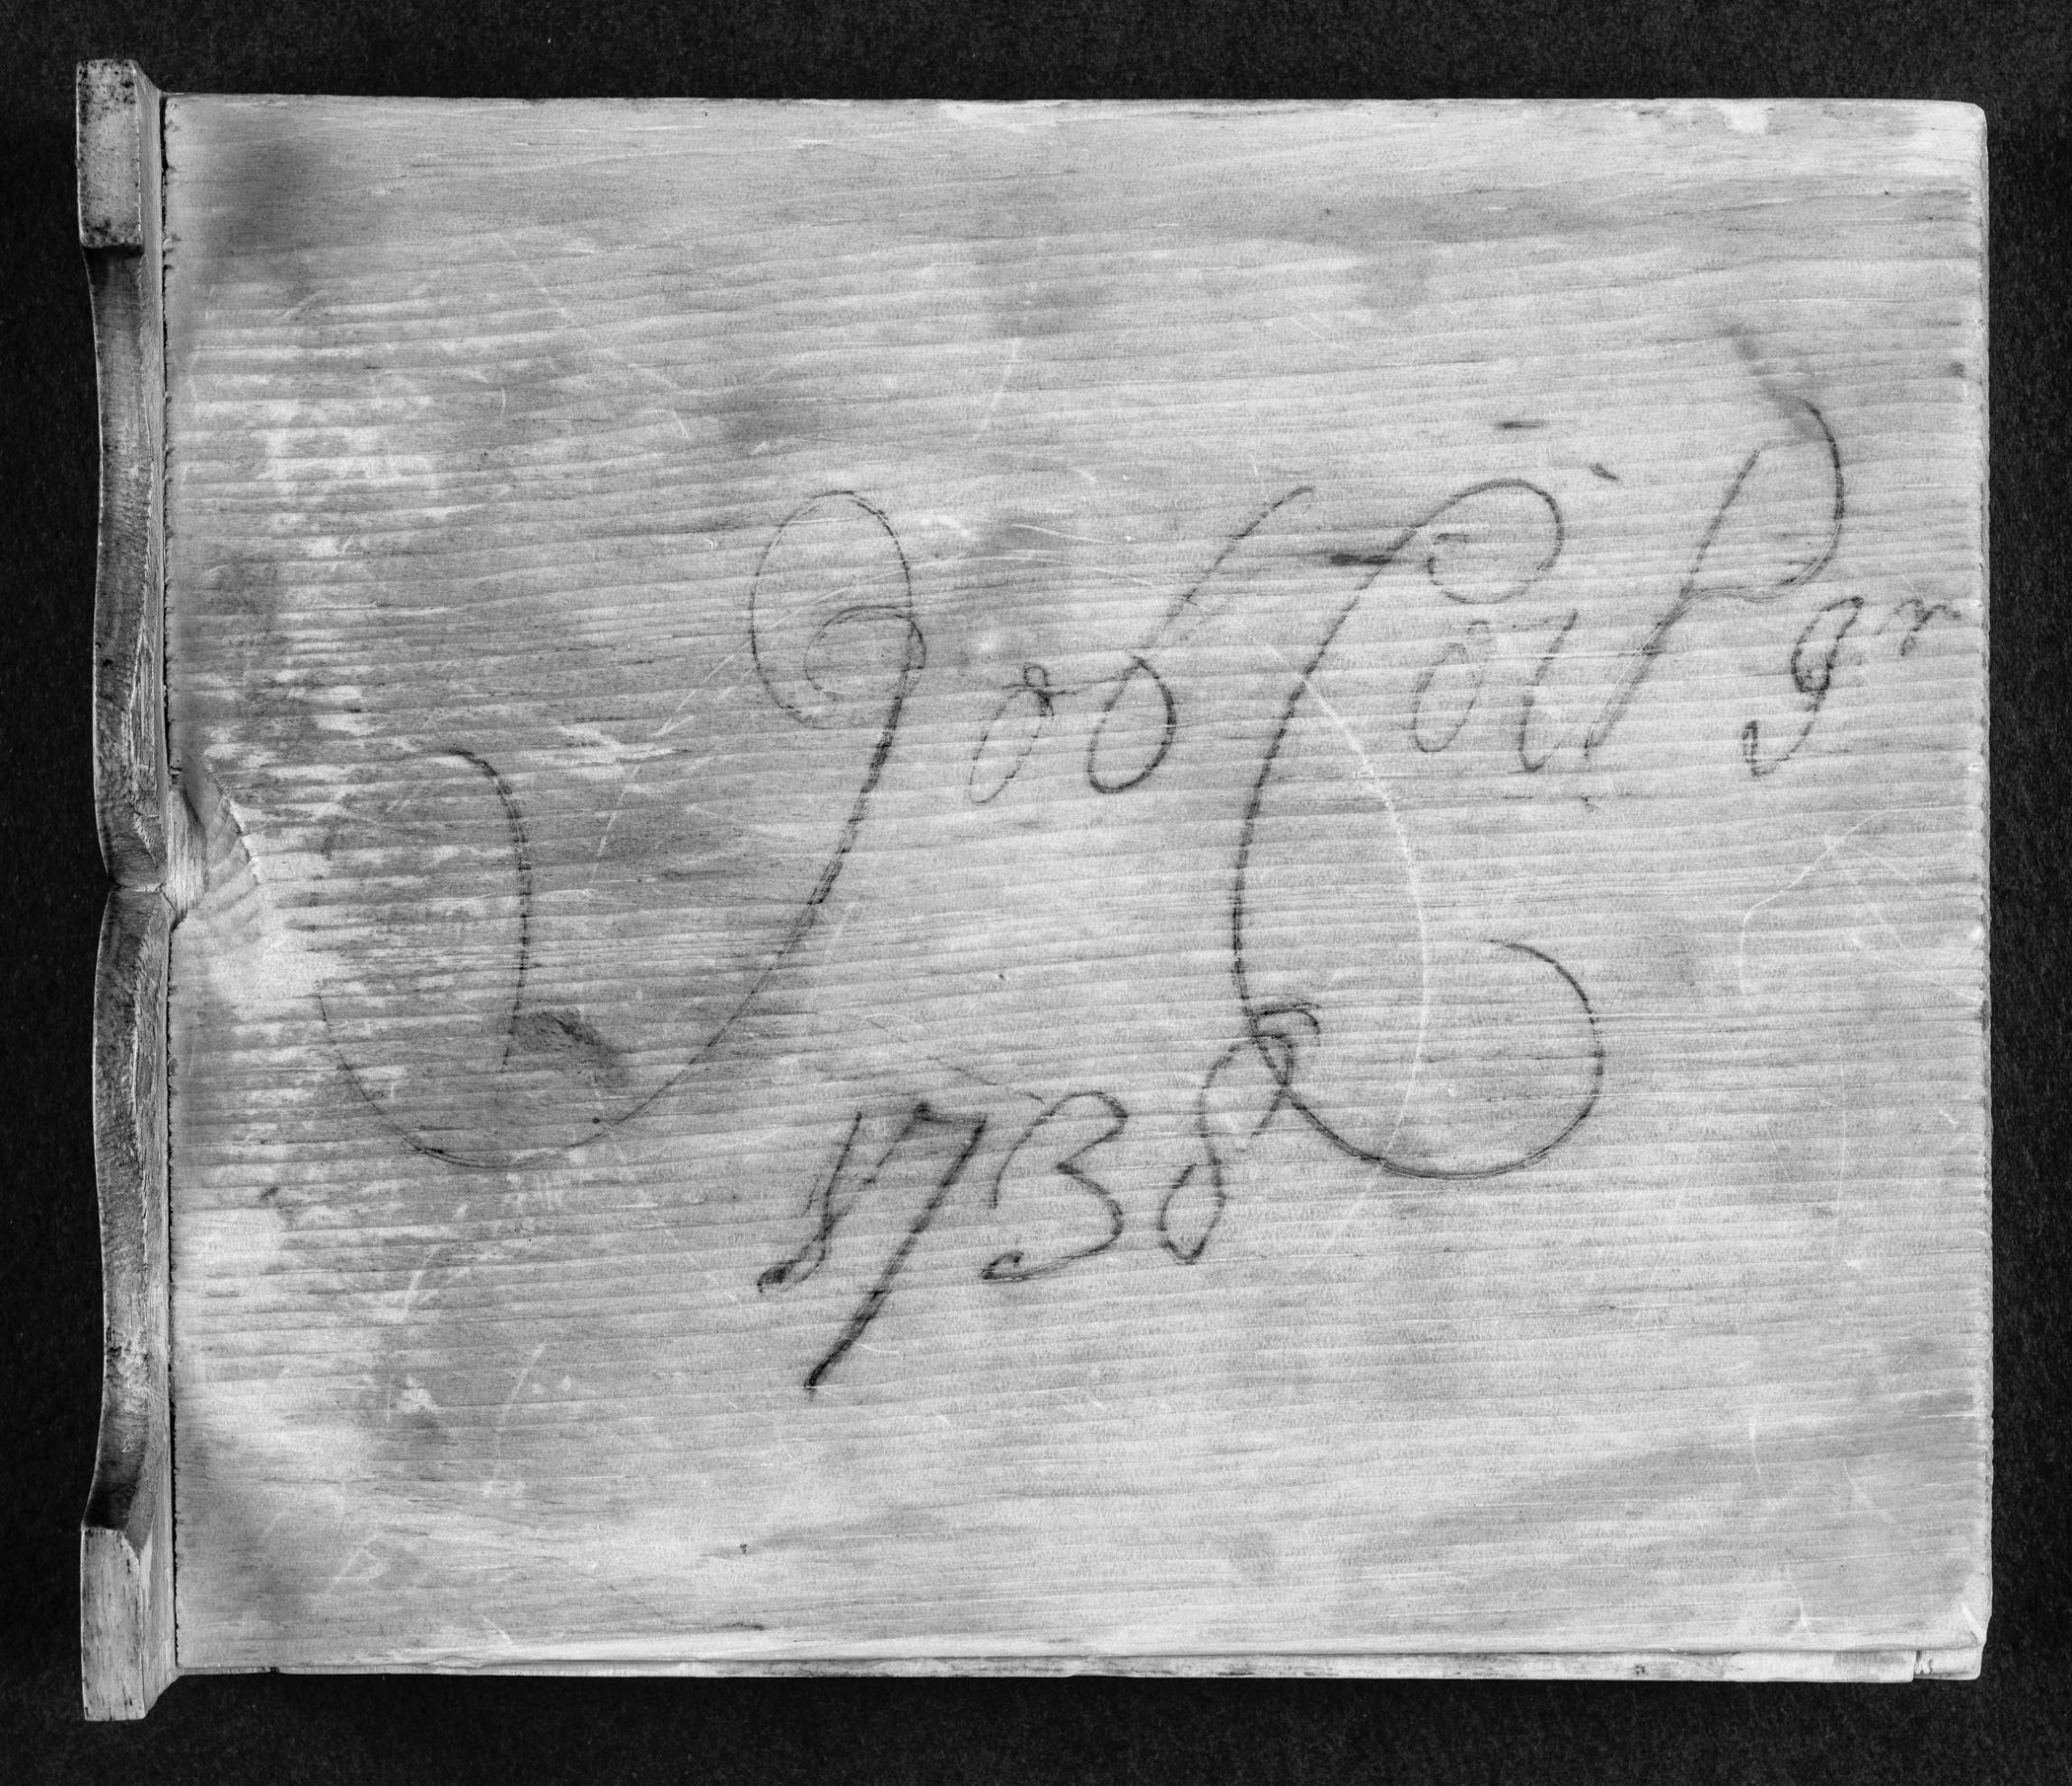 Job Coit Jr
1738